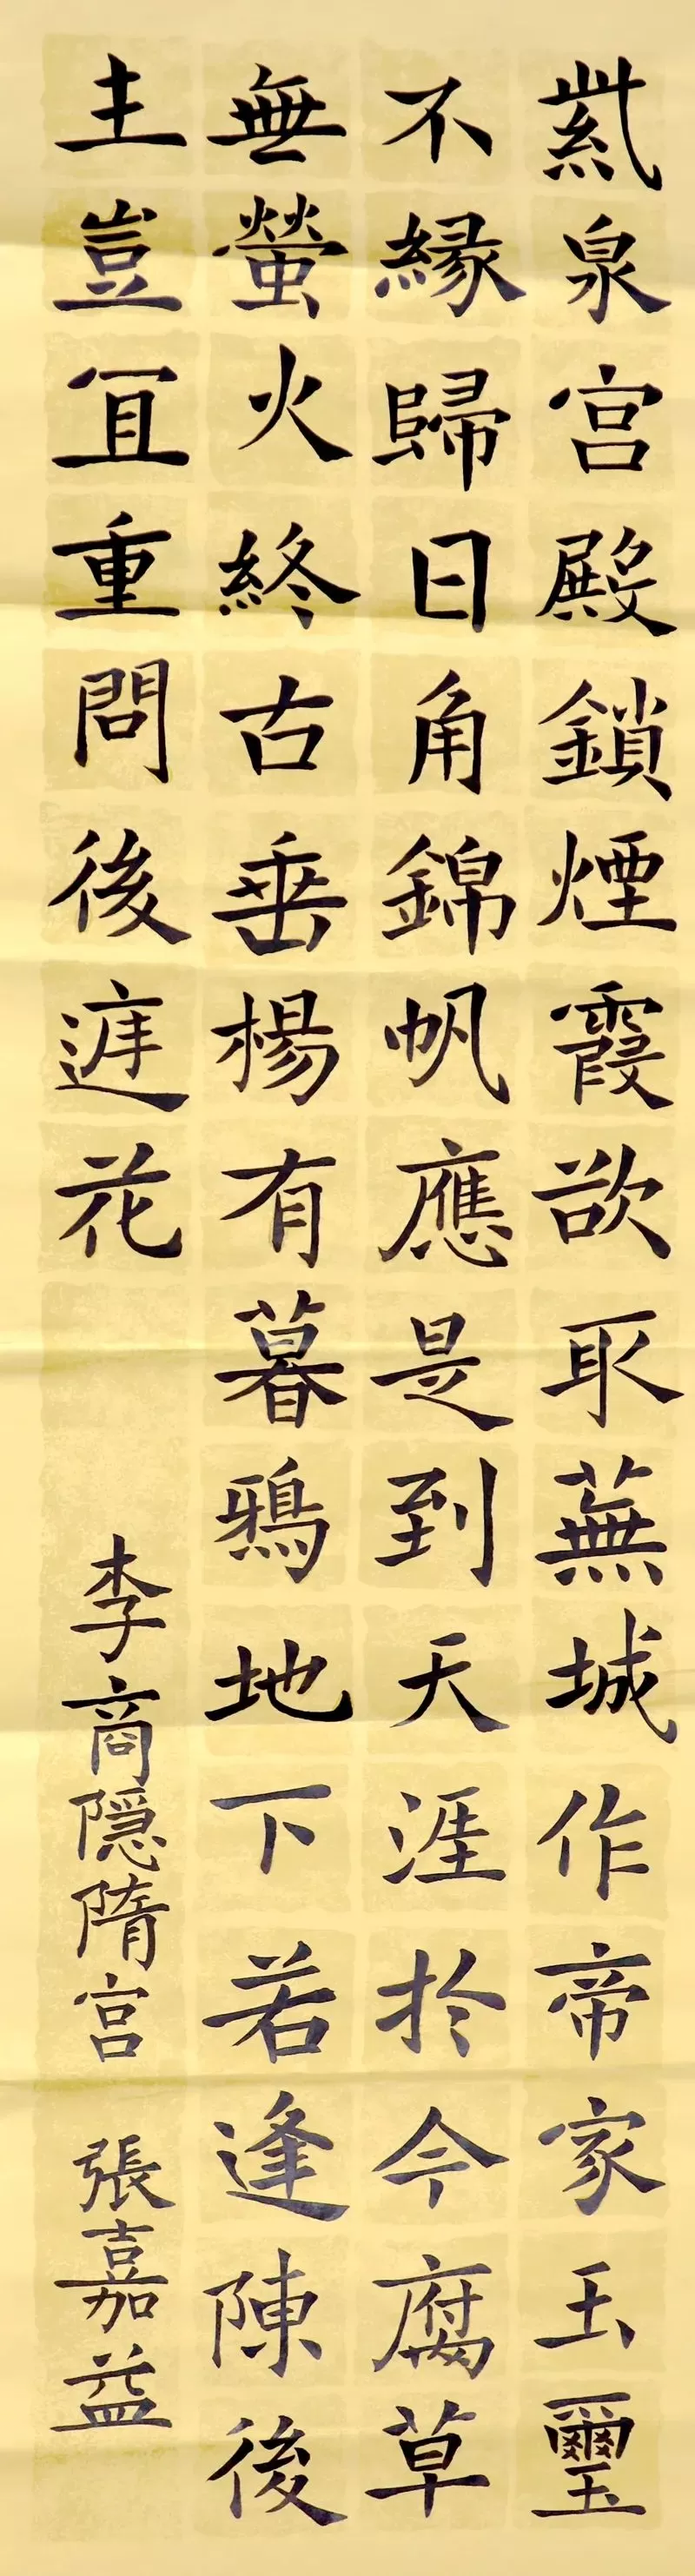 紫泉宮殿鎖煙霞欲取蕪城作帝家玉璽
不縁歸日角錦帆應是到天涯於今腐草
無螢火終古垂楊有暮鴉地下若逢陳後
主豈宜重問後庭花
李商隱隋宮
張嘉益